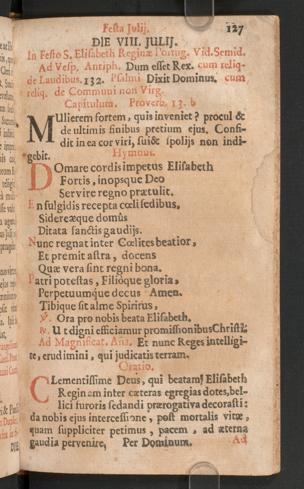 Festa Julij. 127
DIE VIII. JULIJ.
In Festo S. Elisabeth Reginæ Portug. Vid. Semid.
Ad Vesp. Antiph. Dum esset Rex. cum reliq-
de Laudibus. 132. Psalmi Dixit Dominus. cum
reliq. de Communi non Virg.
Capitulum. Proverb. 13. b
MUlierem fortem, quis inveniet? procul &
de ultimis finibus pretium ejus. Confi-
dit in ea cor viri, sui& spolijs non indi-
gebit. Hymnus.
DOmare cordis impetus Elisabeth
Fortis, inopsque Deo
Servire regno prætulit.
En fulgidis recepta cœli sedibus,
Sidereæque domûs
Ditata sanctis gaudijs.
Nunc regnat inter Cœlites beatior,
Et premit astra, docens
Quæ vera sint regni bona.
Patri potestas, Filióque gloria,
Perpetuumque decus Amen.
Tibique sit alme Spiritus,
℣. Ora pro nobis beata Elisabeth.
℟. Ut digni efficiamur promissionibus Christi.
Ad Magnificat. Aña. Et nunc Reges intelligi-
te, erudimini, qui judicatis terram.
Oratio.
CLementissime Deus, qui beatam Elisabeth
Reginam inter cæteras egregias dotes, bel-
lici furoris sedandi prærogativa decorasti:
da nobis ejus intercessione, post mortalis vitæ,
quam suppliciter petimus, pacem, ad æterna
gaudia pervenire, Per Dominum. Ad